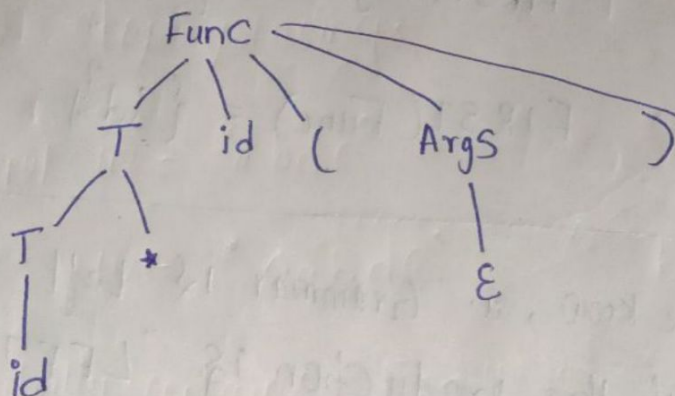 Func
T id ( Args )
T * ε
id